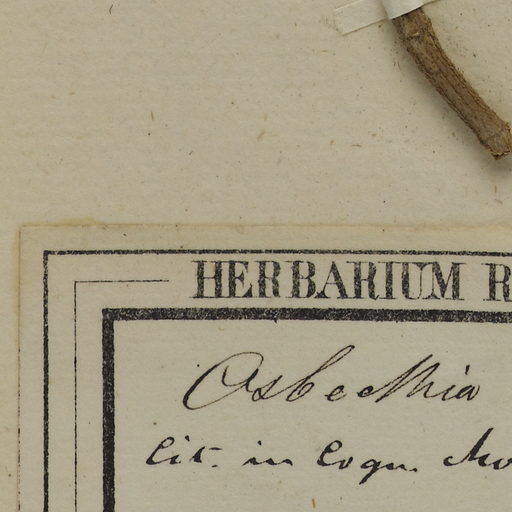 HERBARIUM R
Osbeckia
Cit. in Cogn. Mo